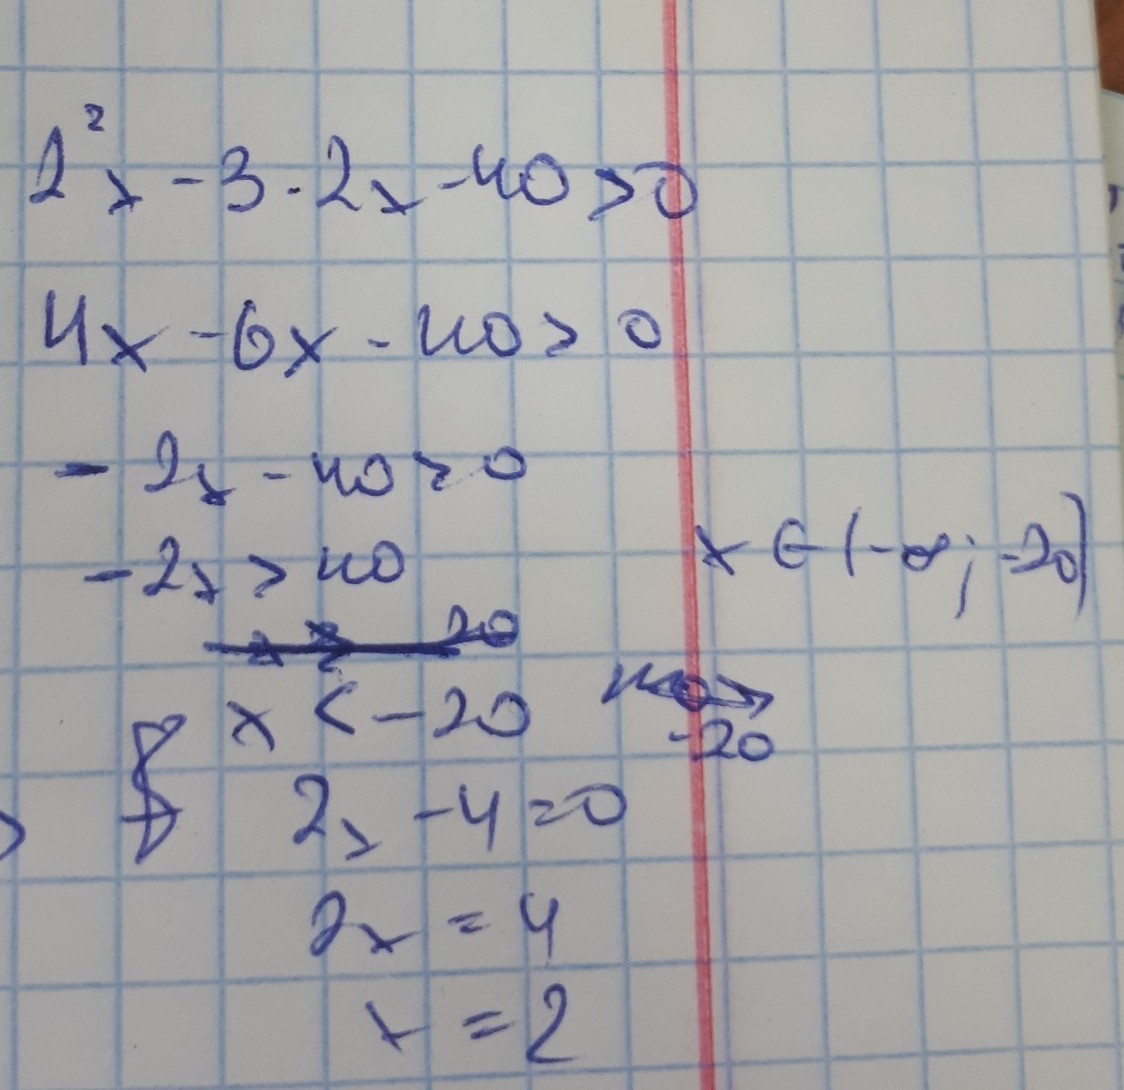 2²x - 3 · 2x - 40 > 0
4x - 6x - 40 > 0
- 2x - 40 > 0
- 2x > 40
x < - 20
x ∈ (-∞; -20)
-20
2x - 4 = 0
2x = 4
x = 2